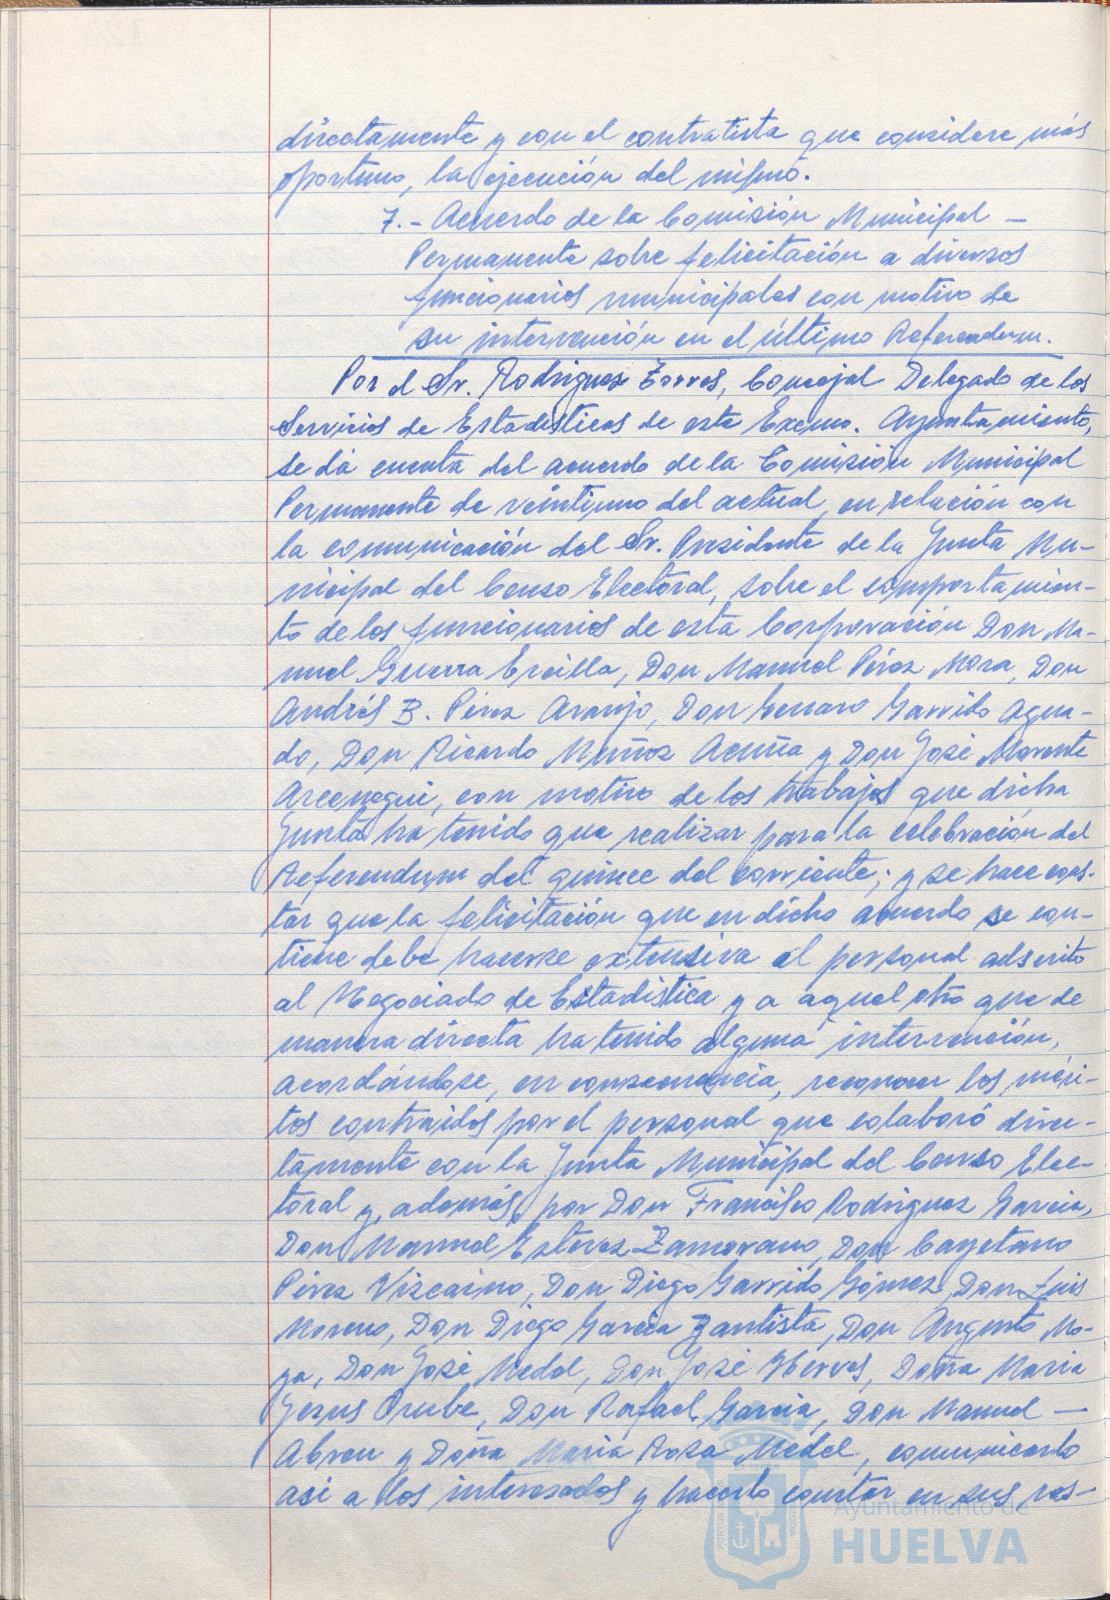 directamente y con el contratista que considere más
oportuno, la ejecución del mismo.
7.- Acuerdo de la Comisión Municipal —
Permanente sobre felicitación a diversos
funcionarios municipales con motivo de
su intervención en el último Referendum.
Por el Sr. Rodriguez Torres, Concejal Delegado de los
Servicios de Estadísticas de este Excmo. Ayuntamiento,
se dá cuenta del acuerdo de la Comisión Municipal
Permanente de veintiuno del actual, en relación con
la comunicación del Sr. Presidente de la Junta Mu-
nicipal del Censo Electoral, sobre el comportamien-
to de los funcionarios de esta Corporación Don Ma-
nuel Guerra Ercilla, Don Manuel Pérez Mora, Don
Andrés B. Pérez Araujo, Don Genaro Garrido Agua-
do, Don Ricardo Muñoz Acuña y Don José Morente
Arcenegui, con motivo de los trabajos que dicha
Junta ha tenido que realizar para la celebración del
Referendum del quince del corriente; y se hace cons-
tar que la felicitación que en dicho acuerdo se con-
tiene debe hacerse extensiva al personal adscrito
al Negociado de Estadística y a aquel otro que de
manera directa ha tenido alguna intervención,
acordándose, en consecuencia, reconocer los méri-
tos contraidos por el personal que colaboró direc-
tamente con la Junta Municipal del Censo Elec-
toral y, además, por Don Francisco Rodriguez Garcia,
Don Manuel Esteves Zamorano, Don Cayetano
Pérez Vizcaino, Don Diego Garrido Gómez, Don Luis
Moreno, Don Diego Garcia Bautista, Don Augusto Mo-
ya, Don José Medel, Don José Hierves, Doña Maria
Jesus Orube, Don Rafael Garcia, Don Manuel —
Abreu y Doña Maria Rosa Medel, comunicarlo
asi a los interesados y hacerlo constar en sus res-
Ayuntamiento de
HUELVA